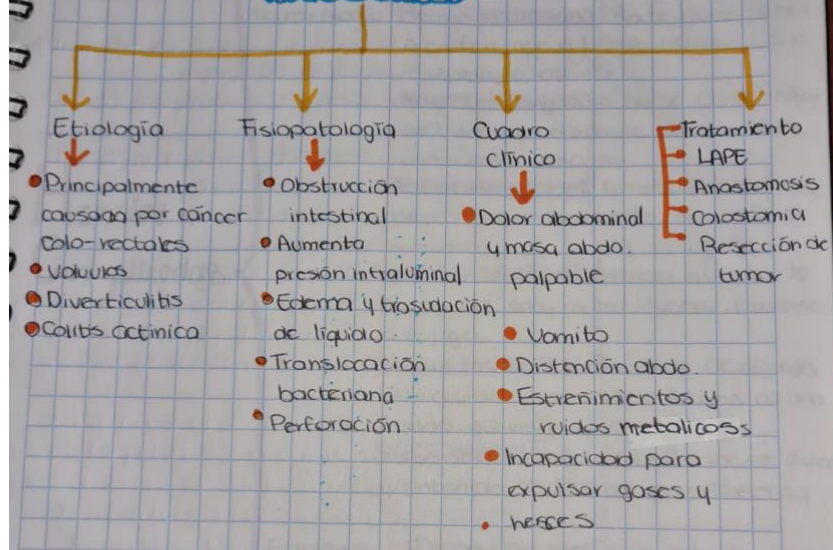 Etiología
Principalmente
causada por cáncer
colo-rectales
Volvulos
Diverticulitis
Colitis actinica
Fisiopatología
Obstrucción
intestinal
Aumenta
presión intraluminal
Edema y trasudación
de liquido
Translocación
bacteriana
Perforación
Cuadro
clínico
Dolor abdominal
y masa abdo.
palpable
Vomito
Distención abdo.
Estreñimientos y
ruidos metalicoss
Incapacidad para
expulsar gases y
hesces
Tratamiento
LAPE
Anastomosis
Colostomia
Resección de
tumor